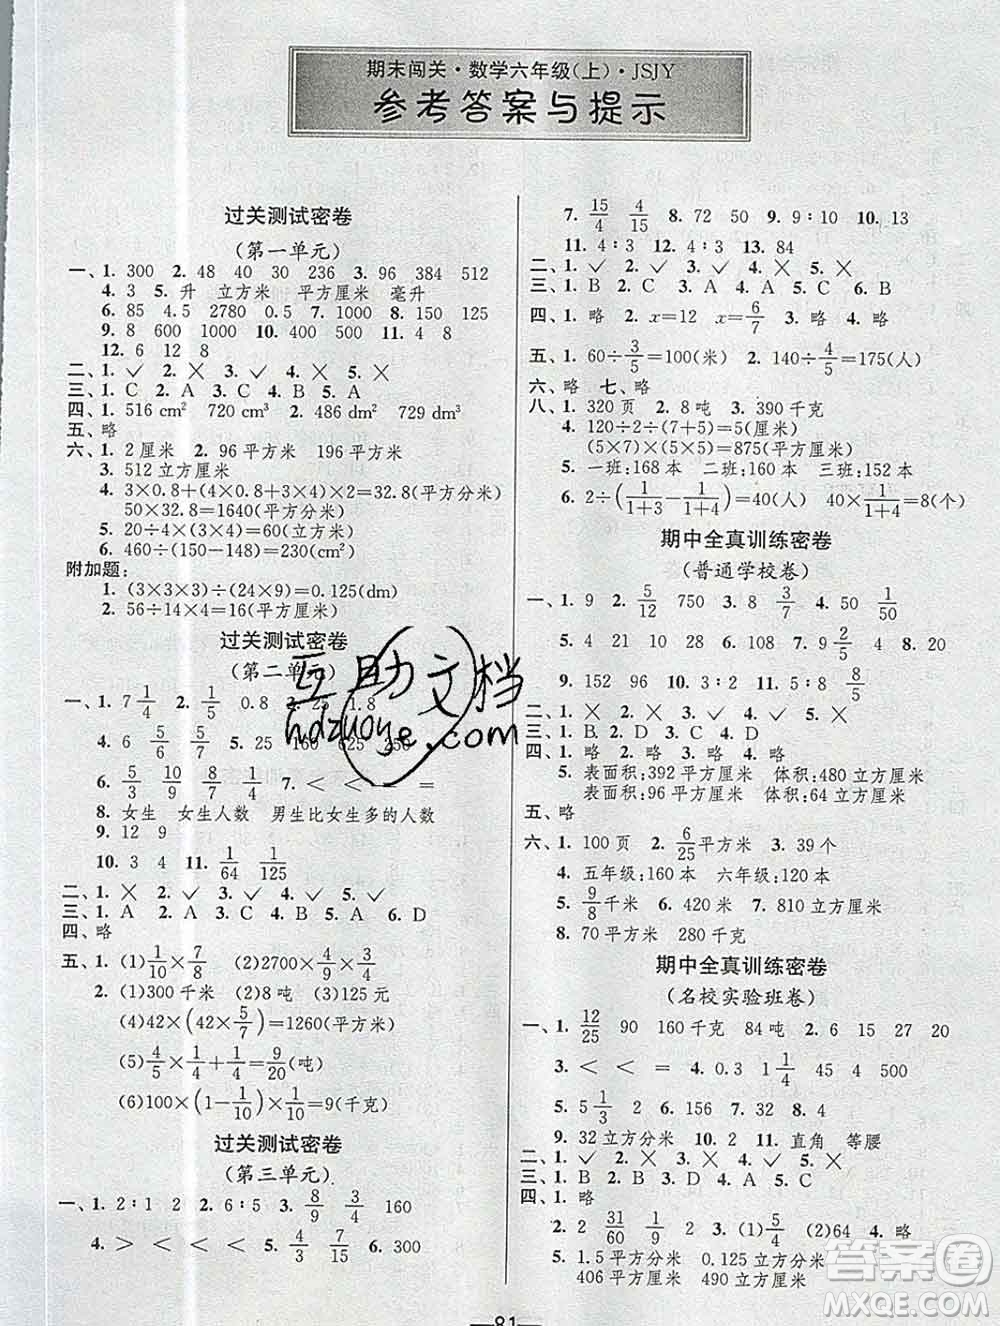 期末闯关·数学六年级(上)·JSJY
参考答案与提示
过关测试密卷
(第一单元)
一、1. 300 2. 48 40 30 236 3. 96 384 512
4. 3 5. 升 立方米 平方厘米 毫升
6. 85 4.5 2780 0.5 7. 1000 8. 150 125
9. 8 600 1000 10. 400 500 11. 4 8
12. 6 12 8
二、1. ✓ 2. ✕ 3. ✓ 4. ✕ 5. ✕
三、1. C 2. A 3. C 4. B 5. A
四、1. 516 cm² 720 cm³ 2. 486 dm² 729 dm³
五、略
六、1. 2厘米 2. 96平方厘米
3. 512立方厘米
4. 3×0.8+(4×0.8+3×4)×2=32.8(平方分米)
50×32.8=1640(平方分米)
5. 20÷4×(3×4)=60(立方厘米)
6. 460÷(150-148)=230(cm²)
附加题:
1. (3×3×3)÷(24×9)=0.125(dm)
2. 56÷14×4=16(平方厘米)
过关测试密卷
(第二单元)
一、1. 7 1/4 2. 1/5 0.8 3. 25 1.8
4. 6 5/6 5/7 5. 25 160 625 250
6. 5/3 9/10 7. < < < =
8. 女生 女生人数 男生比女生多的人数
9. 12 9
10. 3 4 11. 1/64 1/125
二、1. ✕ 2. ✓ 3. ✓ 4. ✕ 5. ✕
三、1. A 2. A 3. C 4. B 5. A 6. D
四、略
五、1. (1) 1/10×7/8 (2)2700×1/9×3/4
2. (1)300千米 (2)8吨 (3)125元
(4)42×(42×5/7)=1260(平方米)
(5) 4/5×1/4+1/4=9/20(吨)
(6)100×(1-1/10)×1/10=9(千克)
过关测试密卷
(第三单元)
一、1. 2∶1 2 2. 6∶5 3. 8/9 3/4 160
4. > < < < 5. 4/3 7/15 6. 300
7. 15/4 4/15 8. 72 50 9. 9∶10 10. 13
11. 4∶3 12. 4∶3 13. 84
二、1. ✓ 2. ✓ 3. ✕ 4. ✕ 5. ✓
三、1. B 2. C 3. A 4. C 5. C 6. B
四、1. 略 2. x=12 x=6/7 3. 略 4. 略
五、1. 60÷3/5=100(米) 2. 140÷4/5=175(人)
六、略 七、略
八、1. 320页 2. 8吨 3. 390千克
4. 120÷2÷(7+5)=5(厘米)
(5×7)×(5×5)=875(平方厘米)
5. 一班:168本 二班:160本 三班:152本
6. 2÷(1/(1+3)-1/(1+4))=40(人) 40×1/(1+4)=8(个)
期中全真训练密卷
(普通学校卷)
一、1. 9 2. 5/12 750 3. 8 3/7 4. 50 1/50
5. 4 5 48 6. 108 7. 9 2/5 4 8. 20
9. 152 96 10. 3∶2 11. 15 8 8/5
二、1. ✕ 2. ✕ 3. ✓ 4. ✓ 5. ✕
三、1. B 2. A 3. C 4. D
四、1. 略 2. 略 3. 略 4. 略
5. 表面积:392平方厘米 体积:480立方厘米
表面积:96平方厘米 体积:64立方厘米
五、略
六、1. 100页 2. 6/25平方米 3. 39个
4. 五年级:160本 六年级:120本
5. 9/8千米 6. 420米 7. 810立方厘米
8. 70平方米 280千克
期中全真训练密卷
(名校实验班卷)
一、1. 12/25 90 160千克 84吨 2. 6 15 27 20
3. < < = 4. 0.3 1 1/4 45 500
5. 5 1/3 2 6. 156 7. 32 8. 144
9. 32立方分米 10. 2 11. 直角 等腰
二、1. ✓ 2. ✕ 3. ✕ 4. ✓ 5. ✓
三、1. B 2. D 3. C 4. B 5. C
四、1. 略
2. 2 31/60 1/66 9 3. (1) 1/2 (2)64 4. 略
5. 1.5平方分米 0.125立方分米
406平方厘米 490立方厘米
81
互助文档
hdzuoye.com
答案圈
MXQE.COM